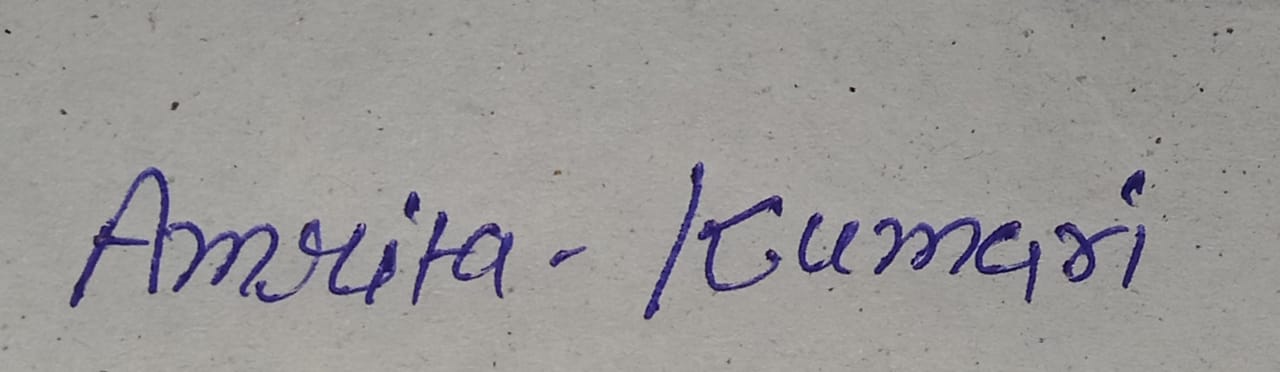 Amrita - Kumari